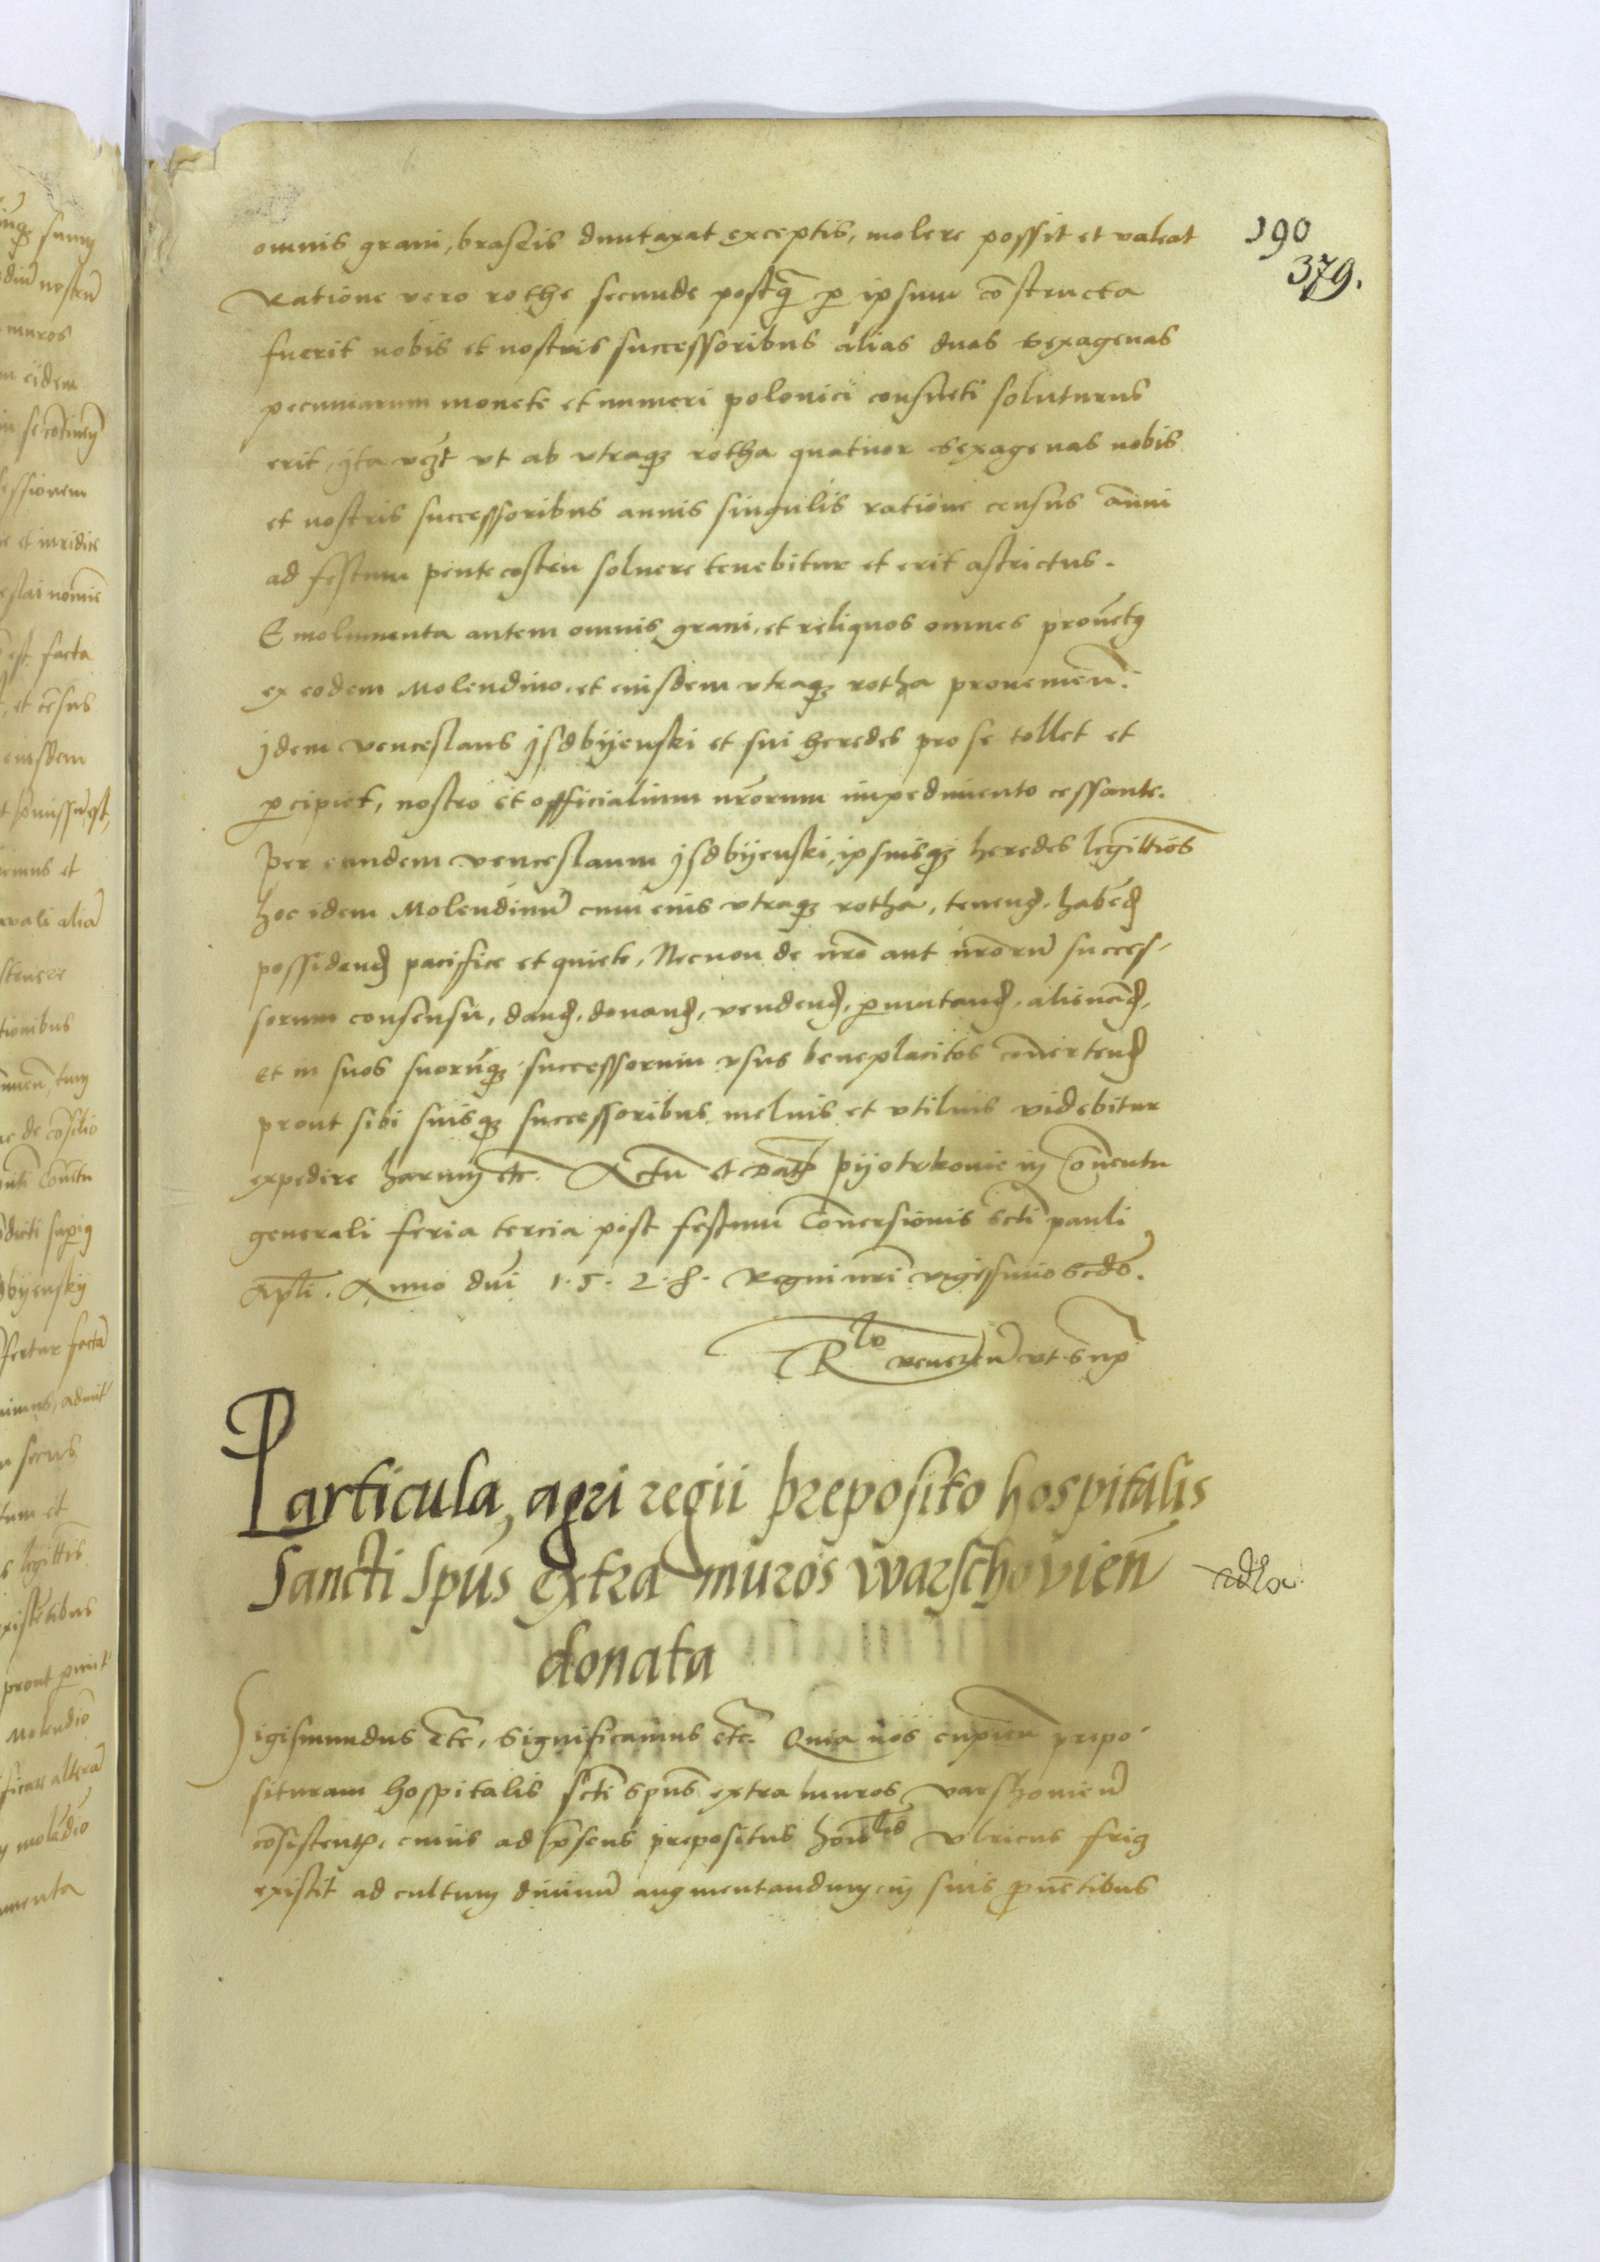 190
379.
omnis grani, braseis duntaxat exceptis, molere possit et valeat
Ratione vero rothe secunde postq̃ ꝑ ipsum cõstructa
fuerit nobis et nostris successoribus alias duas sexagenas
pecuniarum monete et numeri polonici consueti soluturus
erit, ita vꝫt vt ab vtraqꝫ rotha quatuor sexagenas nobis
et nostris successoribus annis singulis ratione census annui
ad festum pentecosten soluere tenebitur et erit astrictus.
Emolumenta autem omnis grani, et reliquos omnes prouẽtꝰ
ex eodem Molendino, et eiusdem vtraqꝫ rotha prouenieñ.
Idem venceslaus Jsdbijenski et sui heredes pro se tollet et
ꝑcipiet, nostro et officialium nr̃orum impedimento cessante.
Per eundem venceslaum Jsdbijenski, ipsiusqꝫ heredes legittĩos
hoc idem Molendinũ cum eius vtraqꝫ rotha, tenenđ, habẽđ
possidenđ pacifice et quiete, Necnon de nr̃o aut nr̃orũ succes-
sorum consensu, danđ, donanđ, vendenđ, ꝑmutanđ, alienãđ,
et in suos suorũqꝫ successorum vsus beneplacitos cõuertenđ
prout sibi suisqꝫ successoribus melius et vtilius videbitur
expedire harum etc. Actũ et datꝭ Pijotrkouie in Cõuentu
generali feria tercia post festum Conuersionis Scti pauli
Apl̃i. Anno dñi 1.5.2.8. Regni nr̃i vigessimo Scdõ.
Rlo venerẽ vt supͣ
Particula, agri regii preposito hospitalis
Sancti Spũs extra muros warschovieñ
donata
Sigismundus etc. Significamus etc. Quia nos cupieñ prepo-
situram hospitalis scti spũs extra muros varschouieñ
cõsistentẽ, cuius ad p̃sens prepositus honlis vlricus frig
existit ad cultum diuinũ augmentandum in suis ꝓuẽtibus